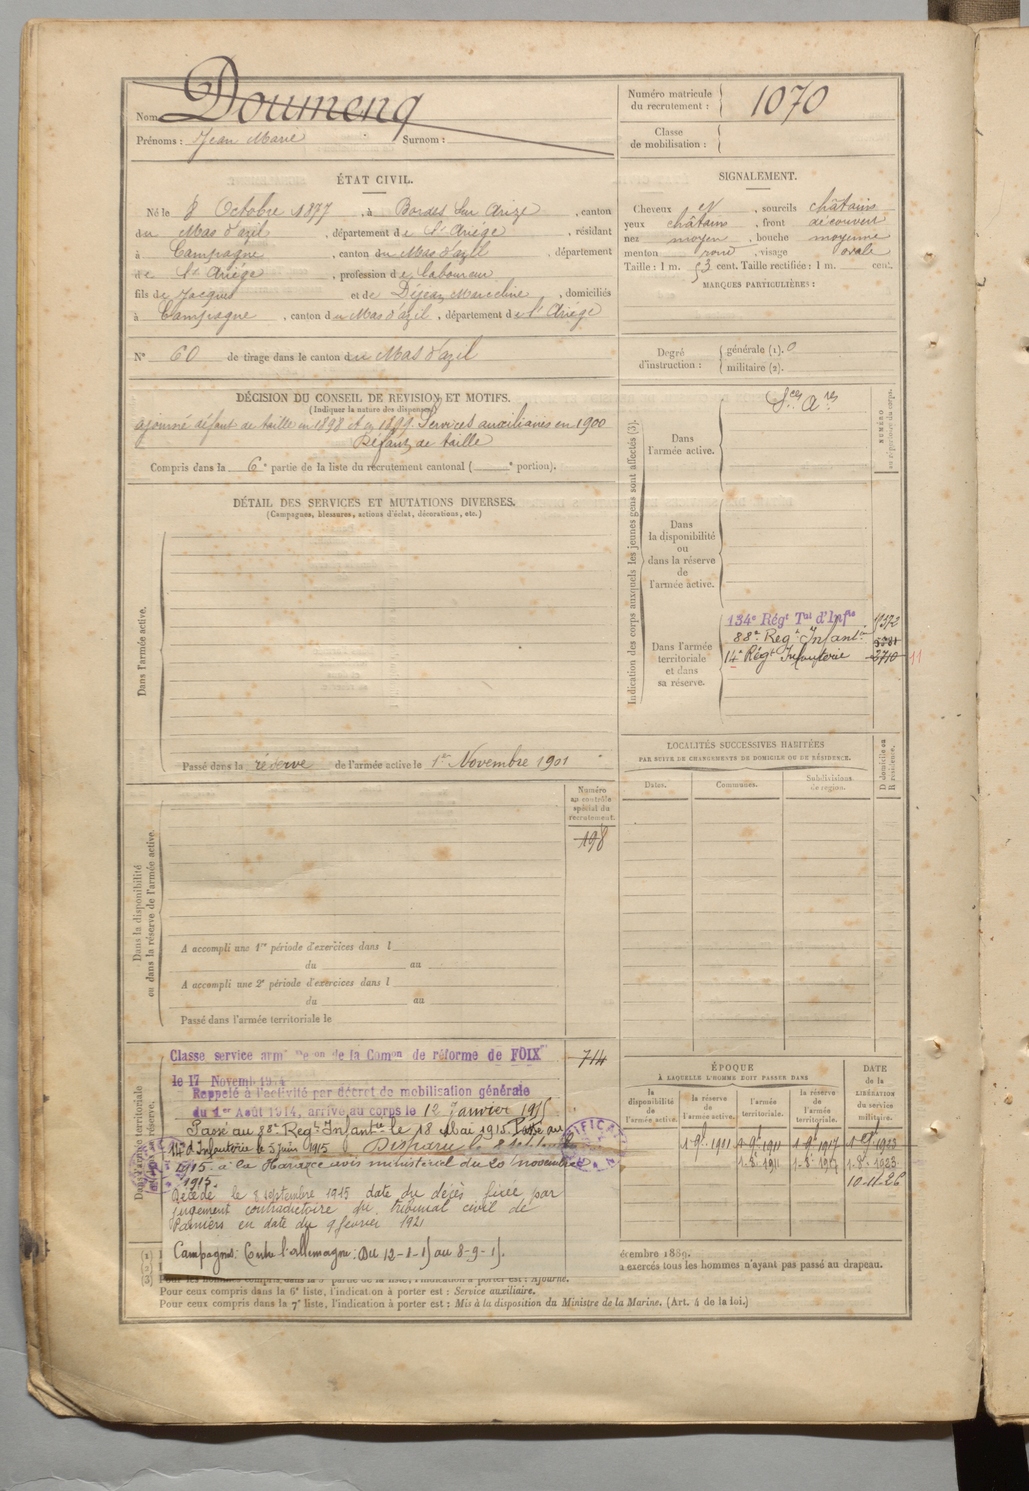 Nom Doumenq
Prénoms : Jean Marie Surnom :
Numéro matricule
du recrutement : 1070
Classe
de mobilisation :
ÉTAT CIVIL.
Né le 8 Octobre 1877, à Bordes sur Arize, canton
du Mas d'azil, département de l'Ariège, résidant
à Campagne, canton du Mas d'azil, département
de l'Ariège, profession de laboureur
fils de Jacques et de Déjean Marceline, domiciliés
à Campagne, canton du Mas d'azil, département de l'Ariège
N° 60 de tirage dans le canton du Mas d'azil
SIGNALEMENT.
Cheveux N, sourcils châtains
yeux châtains, front découvert
nez moyen, bouche moyenne
menton rond, visage ovale
Taille : 1 m. 53 cent. Taille rectifiée : 1 m. cent.
MARQUES PARTICULIÈRES :
Degré
d'instruction :
générale (1). 0
militaire (2).
DÉCISION DU CONSEIL DE RÉVISION ET MOTIFS.
(Indiquer la nature des dispenses)
ajourné défaut de taille en 1898 et en 1899 Services auxiliaires en 1900
Défaut de taille
Compris dans la 6e partie de la liste du recrutement cantonal ( e portion).
DÉTAIL DES SERVICES ET MUTATIONS DIVERSES.
(Campagnes, blessures, actions d'éclat, décorations, etc.)
Dans l'armée active.
Passé dans la réserve de l'armée active le 1er Novembre 1901
Indication des corps auxquels les jeunes gens sont affectés (3).
NUMÉRO
au répertoire du corps.
Dans
l'armée active.
Sces Ares
Dans
la disponibilité
ou
dans la réserve
de
l'armée active.
Dans l'armée
territoriale
et dans
sa réserve.
134e Régt Tal d'Infie
88e Regt Infantie
14e Régt Infanterie 3710 11
LOCALITÉS SUCCESSIVES HABITÉES
PAR SUITE DE CHANGEMENTS DE DOMICILE OU DE RÉSIDENCE.
Dates.
Communes.
Subdivisions
de région.
D domicile ou
R résidence.
Numéro
au contrôle
spécial du
recrutement.
198
Dans la disponibilité
ou dans la réserve de l'armée active
A accompli une 1re période d'exercices dans l
du au
A accompli une 2e période d'exercices dans l
du au
Passé dans l'armée territoriale le
714
Classe service armé Don de la Comon de réforme de FOIX
le 17 Novemb 1914
Rappelé à l'activité par décret de mobilisation générale
du 1er Août 1914, arrivé au corps le 12 Janvier 1915
Passé au 88e Regt Infantie le 18 Mai 1915 Passé au
14e d'Infanterie le 5 juin 1915 Disparu le 8
1915 à la Harazée avis ministériel du 20 novembre
1915.
Décédé le 8 septembre 1915 date du décès fixée par
jugement contradictoire du tribunal civil de
Pamiers en date du 9 février 1921
Campagnes : Contre l'allemagne : Du 12-1-15 au 8-9-15.
ÉPOQUE
À LAQUELLE L'HOMME DOIT PASSER DANS
la
disponibilité
de
l'armée active.
la réserve
de
l'armée active.
l'armée
territoriale.
la réserve
de
l'armée
territoriale.
DATE
de la
LIBÉRATION
du service
militaire.
10-11-26
écembre 1889.
a exercés tous les hommes n'ayant pas passé au drapeau.
Pour ceux compris dans la 6e liste, l'indication à porter est : Service auxiliaire.
Pour ceux compris dans la 7e liste, l'indication à porter est : Mis à la disposition du Ministre de la Marine. (Art. 4 de la loi.)